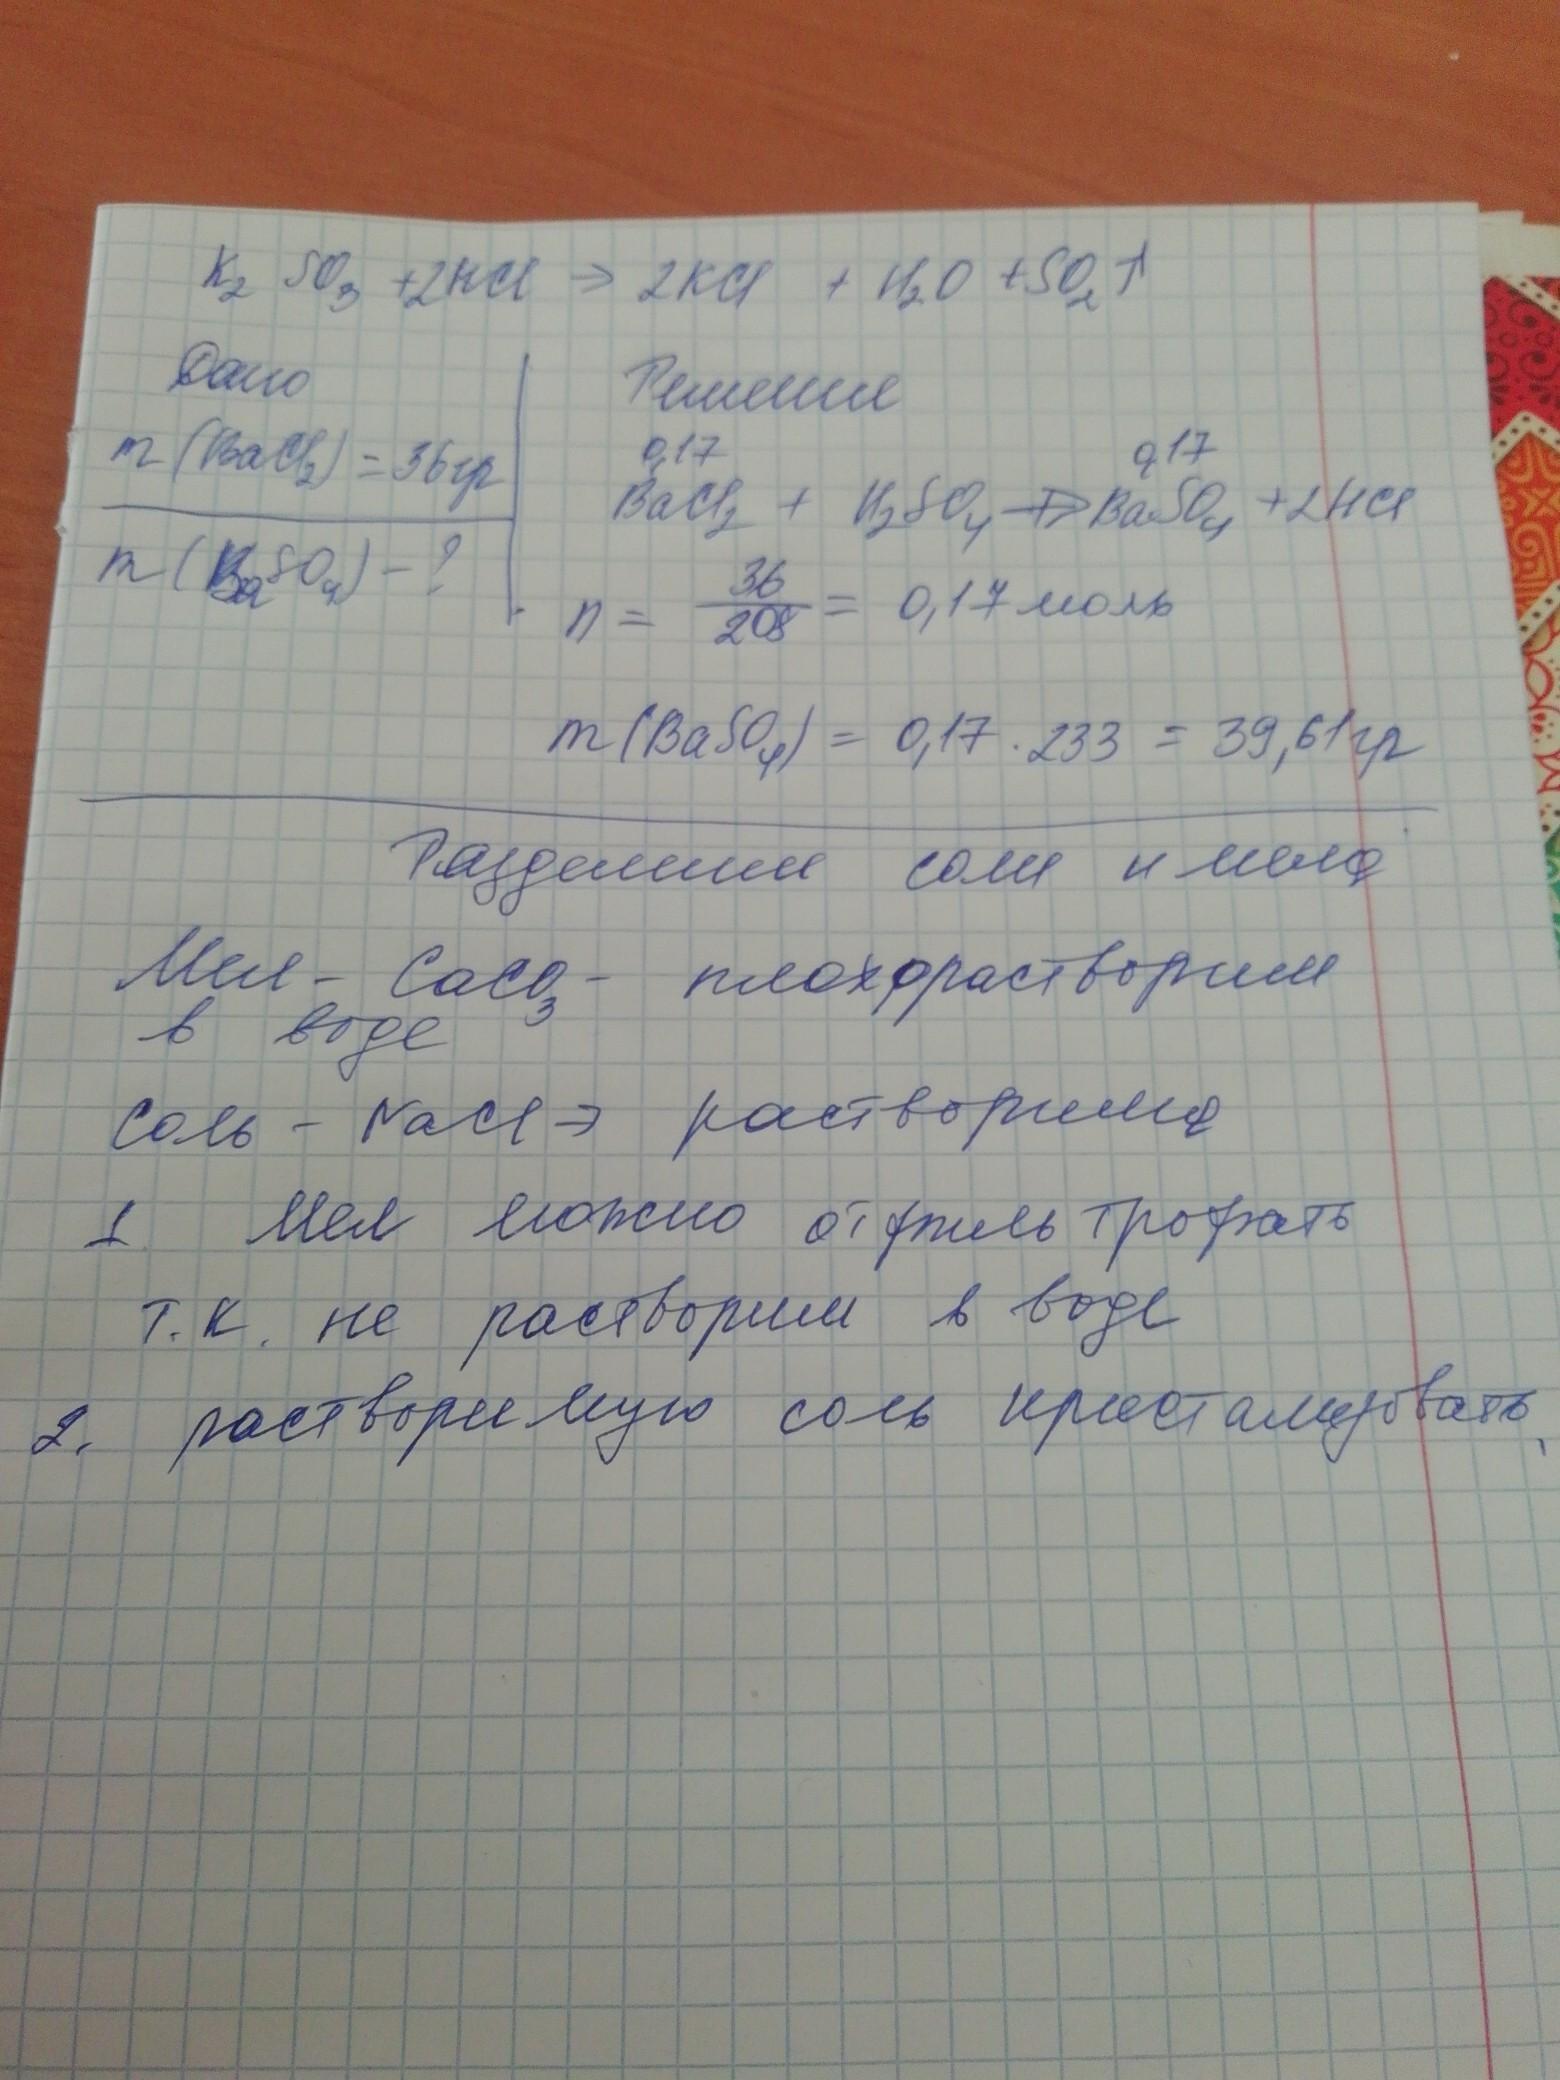 K₂SO₃ + 2HCl → 2KCl + H₂O + SO₂↑
Дано
Решение
m(BaCl₂) = 36гр
0,17 0,17
BaCl₂ + H₂SO₄ → BaSO₄ + 2HCl
m(BaSO₄) - ?
n = 36/208 = 0,17 моль
m(BaSO₄) = 0,17 · 233 = 39,61гр
Разделение соли и мела
Мел - CaCO₃ - плохорастворим
в воде
Соль - NaCl → растворима
1 Мел можно отфильтровать
т.к. не растворим в воде
2. растворимую соль кристализовать.